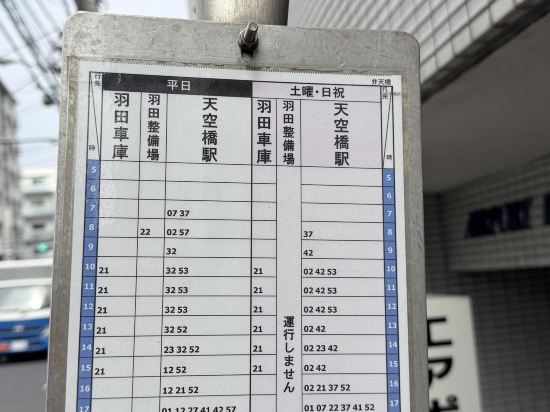 弁天橋
行先 平日 土曜・日祝 行先
時 羽田車庫 羽田整備場 天空橋駅 羽田車庫 羽田整備場 天空橋駅 時
5 5
6 6
7 07 37 7
8 22 02 57 37 8
9 32 42 9
10 21 32 53 21 02 42 53 10
11 21 32 53 21 02 42 53 11
12 21 32 53 21 02 42 53 12
13 21 32 52 21 02 42 13
14 21 23 32 52 21 02 23 42 14
15 21 12 52 21 02 42 15
16 12 21 52 02 21 37 52 16
17 01 12 27 41 42 52 01 07 22 37 41 52 17
運行しません
エアポ